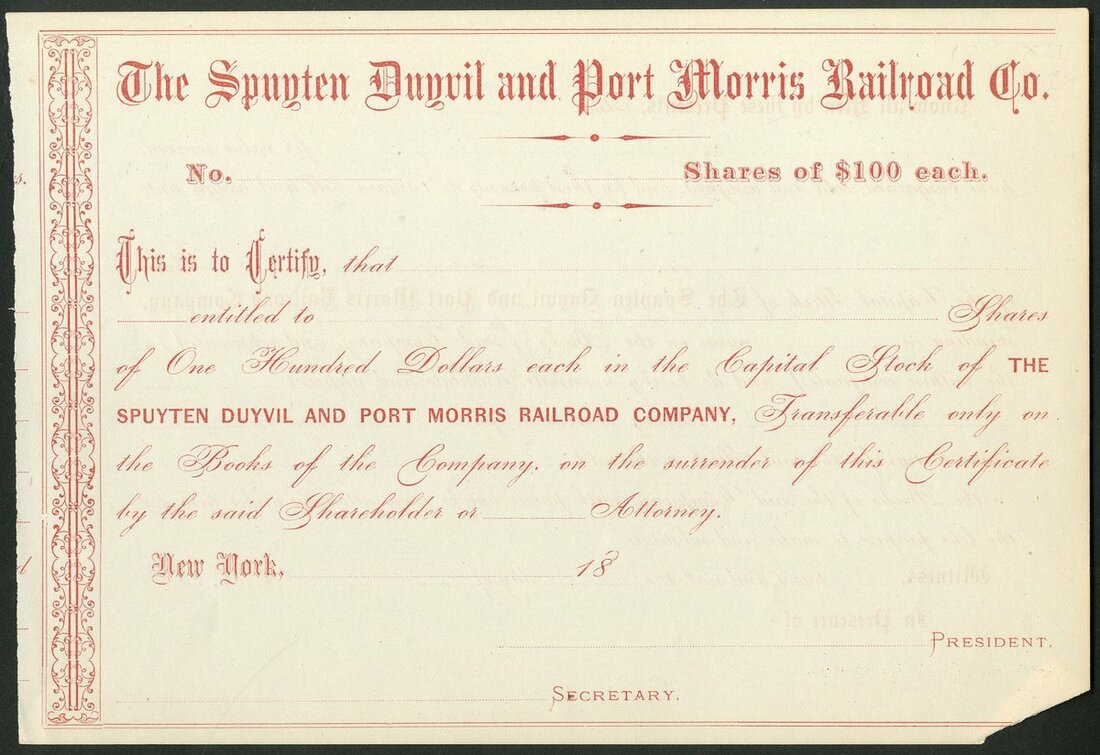 The Spuyten Duyvil and Port Morris Railroad Co.
No. Shares of $100 each.
This is to Certify, that
entitled to Shares
of One Hundred Dollars each in the Capital Stock of THE
SPUYTEN DUYVIL AND PORT MORRIS RAILROAD COMPANY, Transferable only on
the Books of the Company, on the surrender of this Certificate
by the said Shareholder or Attorney.
New York, 18
PRESIDENT.
SECRETARY.